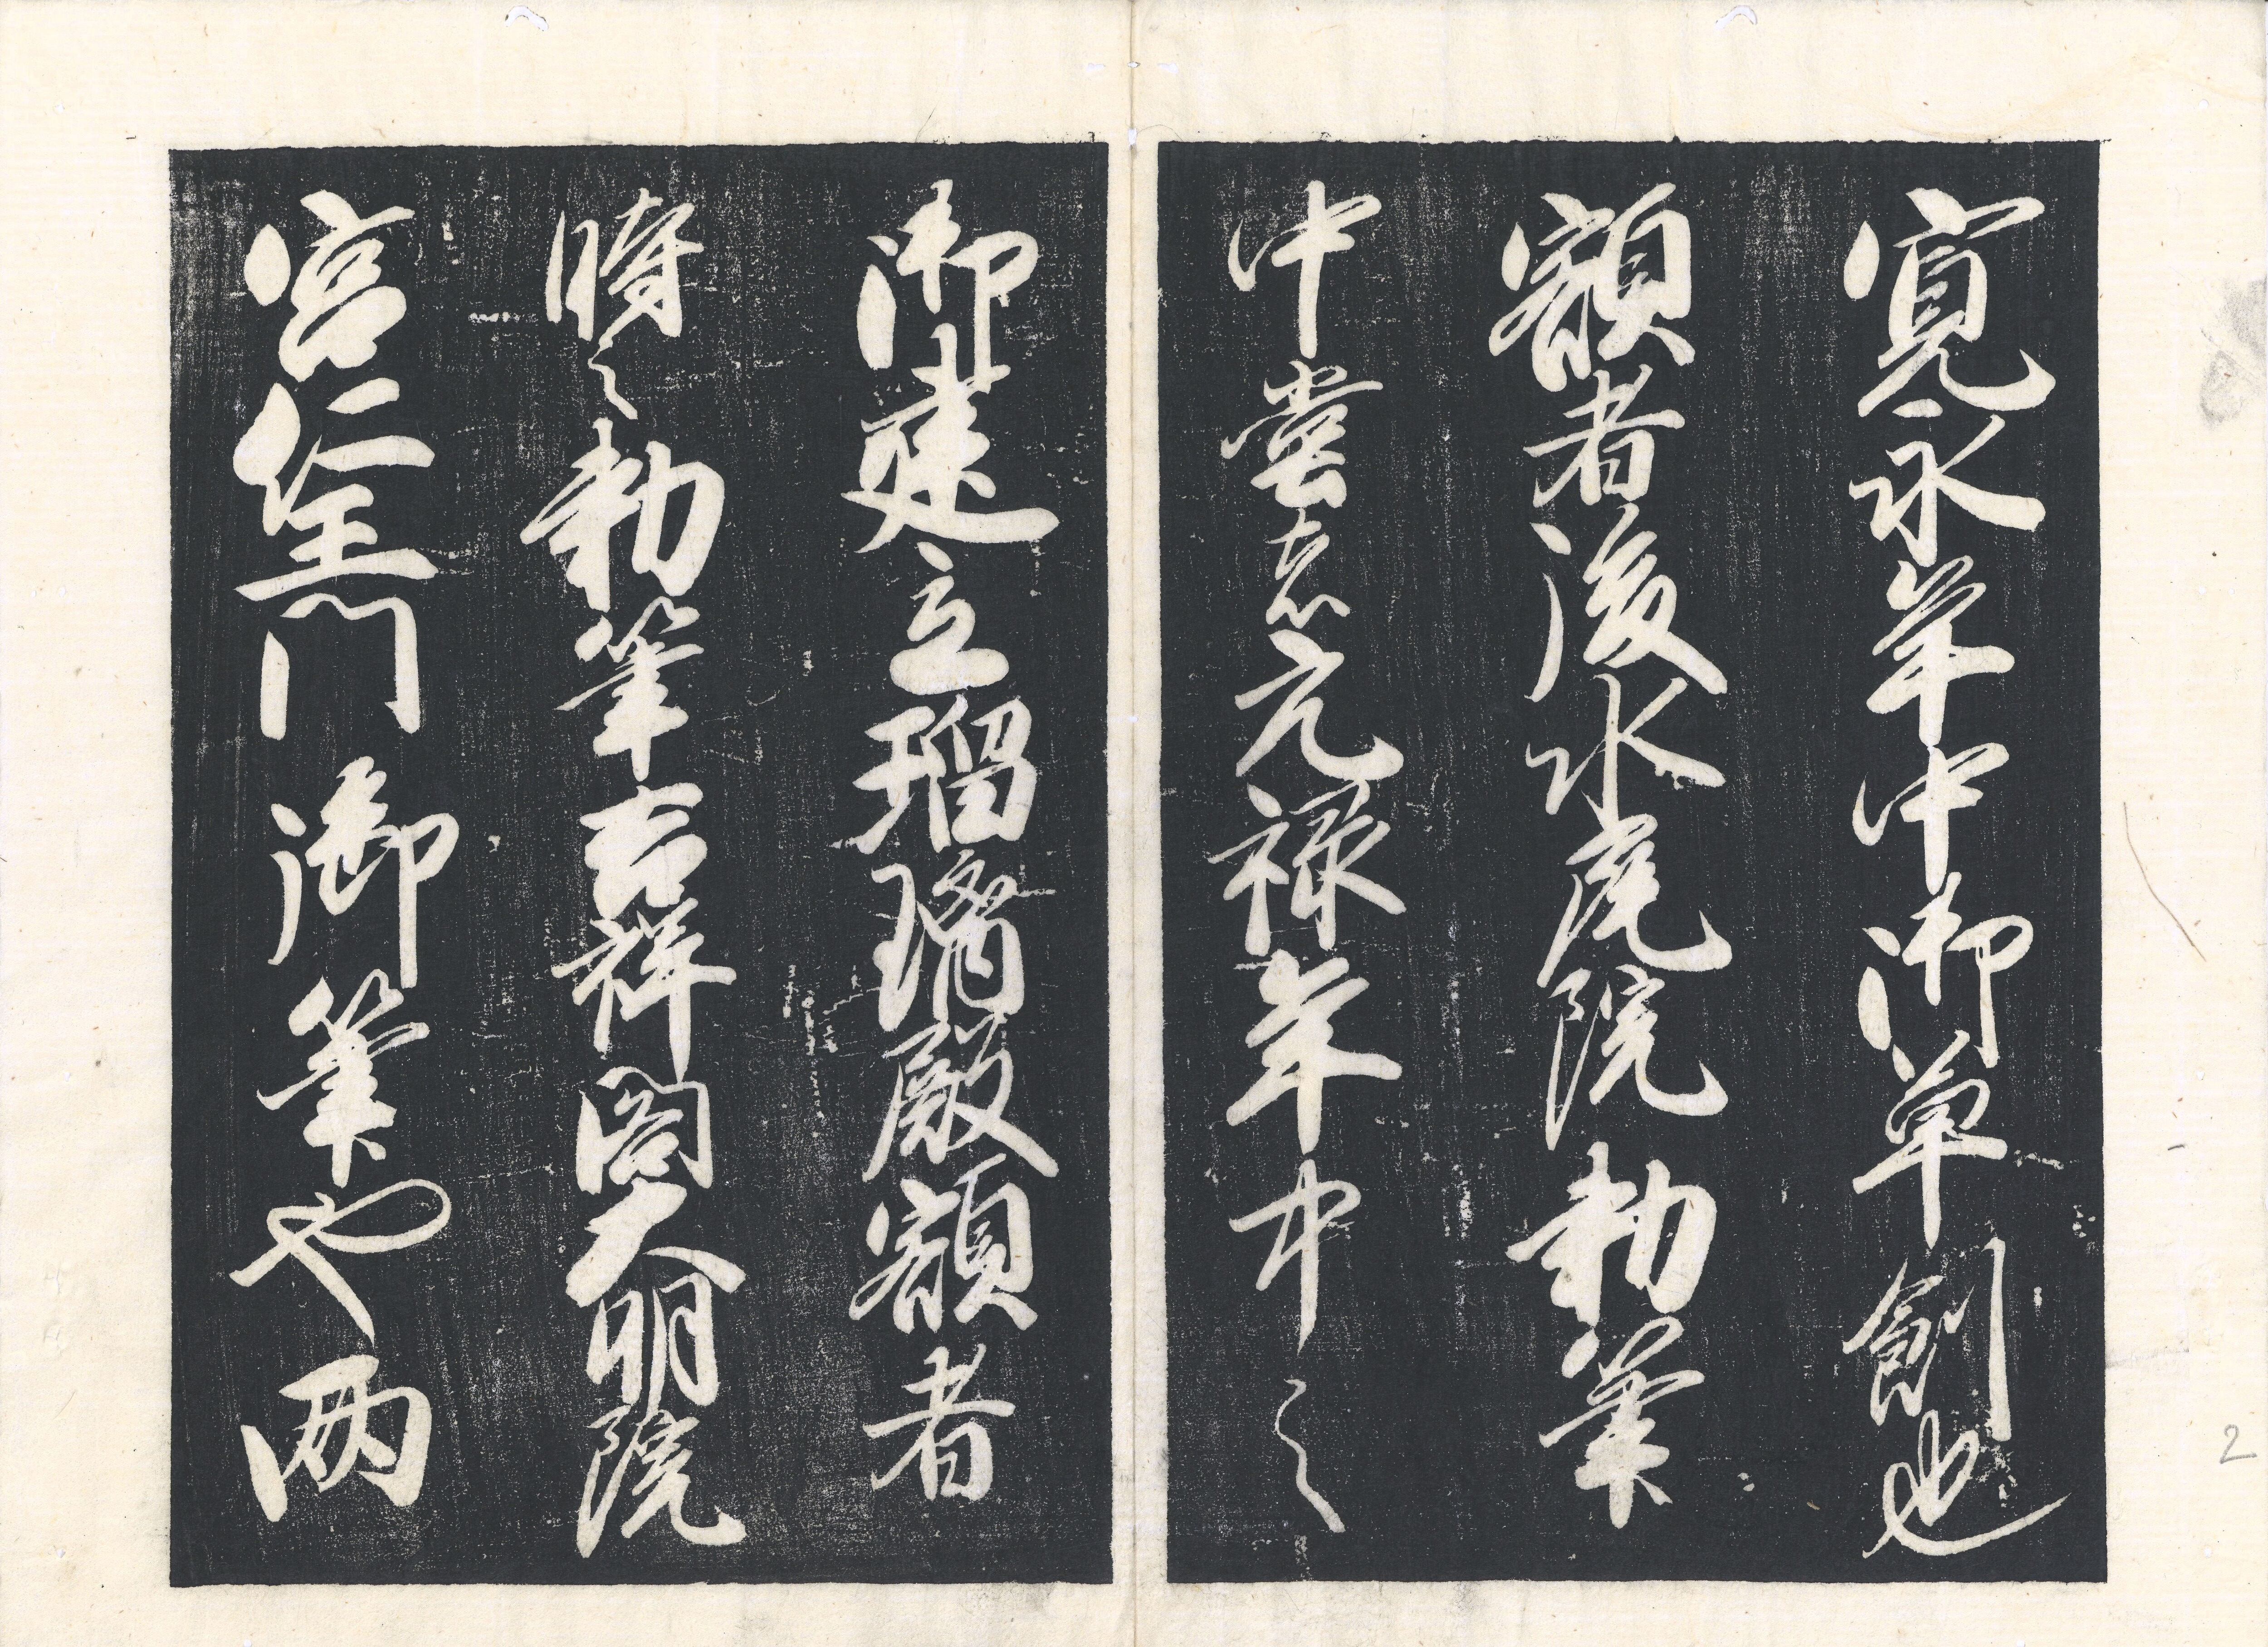 寛永年中御草創也
額者後水尾院勅筆
中堂者元禄年中之
御建立瑠璃殿額者
時之勅筆吉祥閣大明院
宮仁王門御筆也両
2